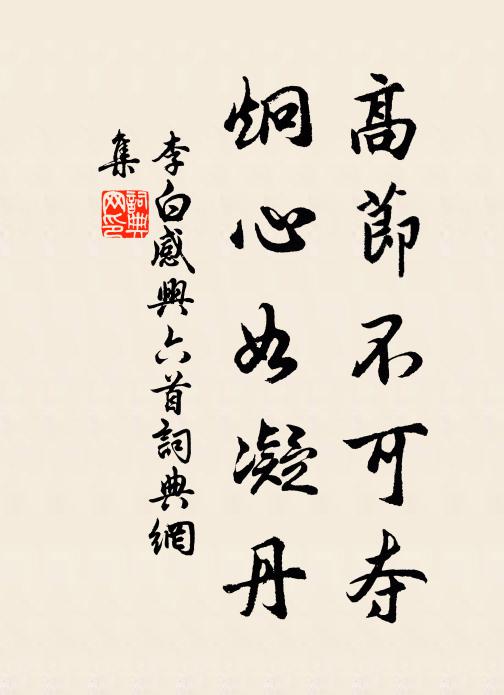 高節不可夺
炯心如凝丹
李白感興六首詞典網
集
詞典
网印